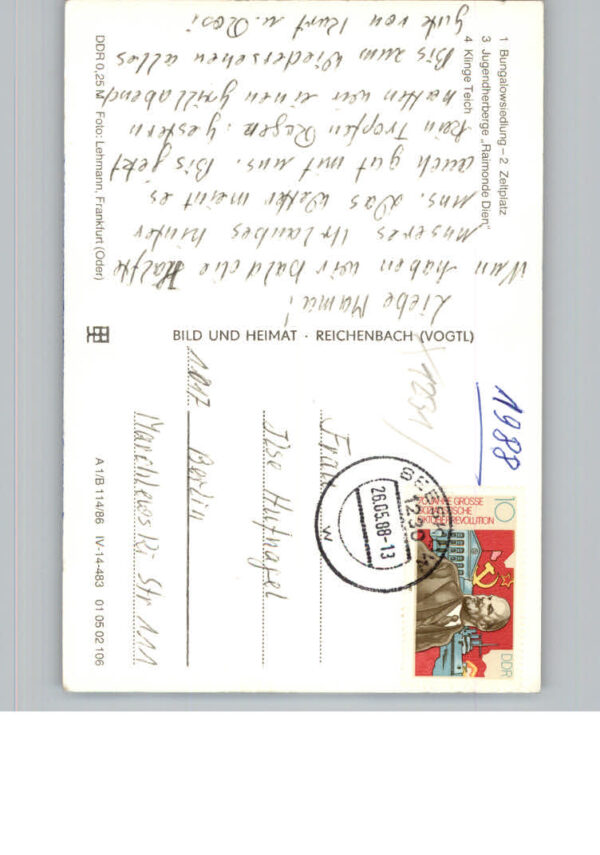 1 Bungalowsiedlung – 2 Zeltplatz
3 Jugendherberge „Raimonde Dien"
4 Klinge Teich
Liebe Mama!
Nun haben wir bald die Hälfte
unseres Urlaubes hinter
uns. Das Wetter meint es
auch gut mit uns. Bis jetzt
kein Tropfen Regen. Gestern
hatten wir einen Grillabend
Bis zum Wiedersehen alles
gute von Kurt u. Rosi
DDR 0,25 M Foto: Lehmann, Frankfurt (Oder)
BILD UND HEIMAT · REICHENBACH (VOGTL)
1988
10
70 JAHRE GROSSE
SOZIALISTISCHE
OKTOBERREVOLUTION
DDR
1230
26.05.88-13
W
Frau
Ilse Hufnagel
1017 Berlin
Marchlewski Str 111
A 1/B 114/86 IV-14-483 01 05 02 106